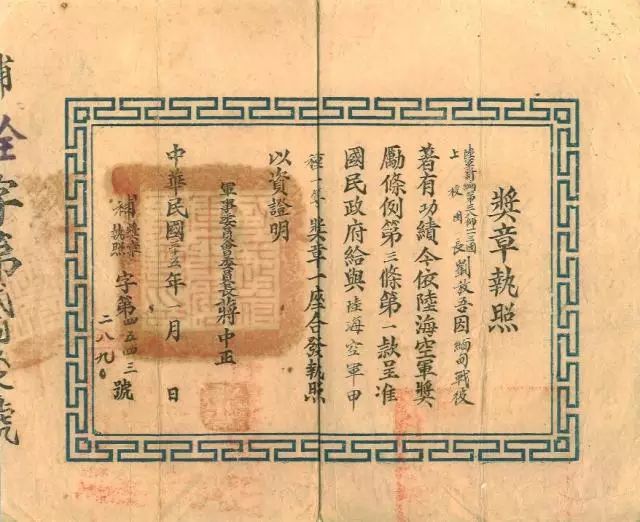 獎章執照
陸軍新編第三八師一一三團
上校團長劉放吾因緬甸戰役
著有功績今依陸海空軍獎
勵條例第三條第一款呈准
國民政府給與陸海空軍甲
種一等獎章一座合發執照
以資證明
軍事委員會委員長蔣中正
中華民國三十五年一月 日
補 執照 字第四五四三號
二八九
字第
號